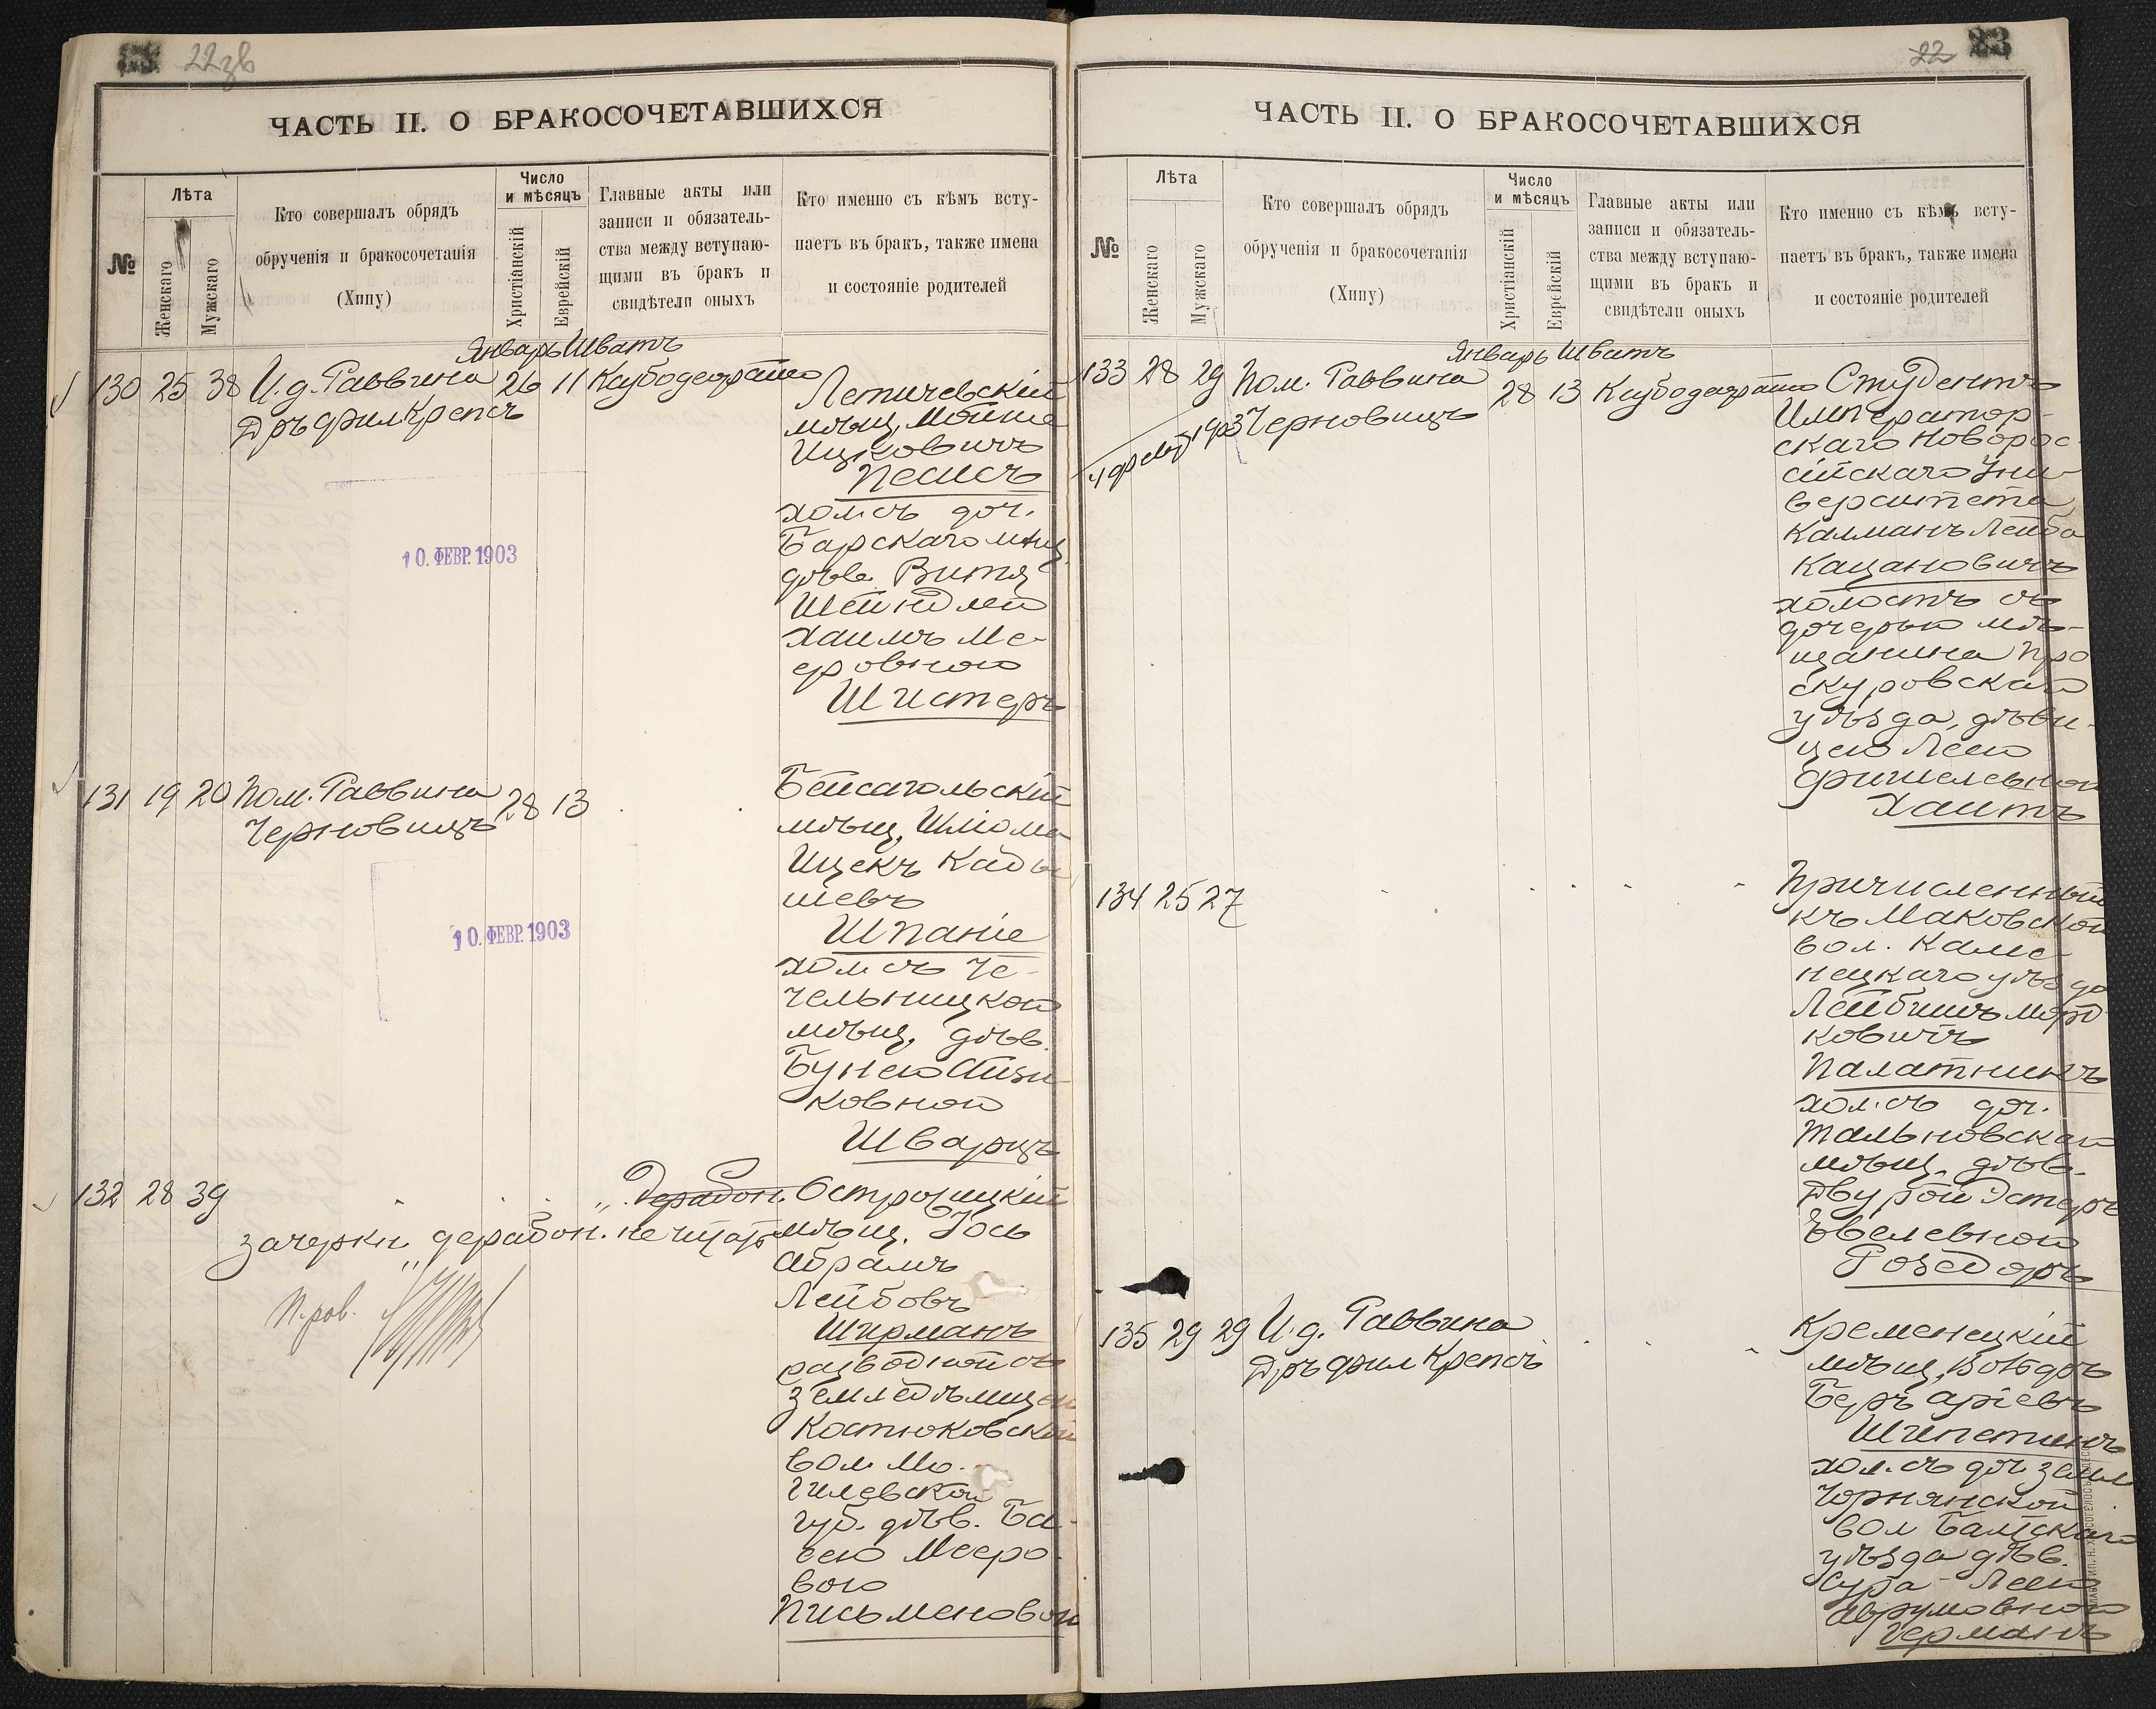 22зв
ЧАСТЬ II. О БРАКОСОЧЕТАВШИХСЯ
№
Лѣта
Женскаго
Мужскаго
Кто совершалъ обрядъ
обрученія и бракосочетанія
(Хипу)
Число
и мѣсяцъ
Христіанскій
Еврейскій
Главные акты или
записи и обязатель-
ства между вступаю-
щими въ бракъ и
свидѣтели оныхъ
Кто именно съ кѣмъ всту-
паетъ въ бракъ, также имена
и состояніе родителей
Январь Шватъ
130 25 38 И.д. Раввина 26 11
Дръ фил Крепсъ
Летичевскій
мѣщ. Мойше
Ицковичъ
Песисъ
хол. съ доч.
Барскаго мѣщ.
дѣв. Витя
Шейндлею
Хаимъ Ме-
еровною
Шистеръ
10. ФЕВР. 1903
131 19 20 Пом. Раввина 28 13
Черновицъ
Бейсагольскій
мѣщ. Шліома
Ицекъ Кады
шевъ
Шпаніе
хол. съ Че-
чельницкою
мѣщ. дѣв.
Бунею
ковною
Шварцъ
10. ФЕВР. 1903
132 28 39
„ дерабон.
зачеркн. „дерабон. не читать
П.ров.
мѣщ. Іось
Абрамъ
Лейбовъ
Ширманъ
разводной съ
земледѣлицею
Костюковской
вол. Мо-
гилевской
губ. дѣв. Ба-
сею Мееро-
вою
Письменовою
22 23
ЧАСТЬ II. О БРАКОСОЧЕТАВШИХСЯ
№
Лѣта
Женскаго
Мужскаго
Кто совершалъ обрядъ
обрученія и бракосочетанія
(Хипу)
Число
и мѣсяцъ
Христіанскій
Еврейскій
Главные акты или
записи и обязатель-
ства между вступаю-
щими въ бракъ и
свидѣтели оныхъ
Кто именно съ кѣмъ всту-
паетъ въ бракъ, также имена
и состояніе родителей
Январь Шватъ
133 28 29 Пом. Раввина 28 13
Черновицъ
1903
Студентъ
Император-
скаго Новорос-
сійскаго Уни-
верситета
Калманъ Лейба
Кацановичъ
холостъ съ
дочерью мѣ-
щанина Про
скуровскаго
уѣзда, дѣви-
цею Леею
Фишелевною
Хаитъ
134 25 27
Причисленный
къ Маковской
вол. Каме-
нецкаго уѣзда
Лейбишъ Морд-
ковичъ
Палатникъ
хол. съ доч.
Тальновскаго
мѣщ. дѣв.
Двурой Эстеръ
Розедоръ
135 29 29 И.д. Раввина
Дръ фил Крепсъ
Кременецкій
мѣщ.
Беръ Аріевъ
Шпетинъ
хол. съ доч. земл.
вол Балтскаго
уѣзда дѣв.
Сура-Леею
Аврумовною
Германъ